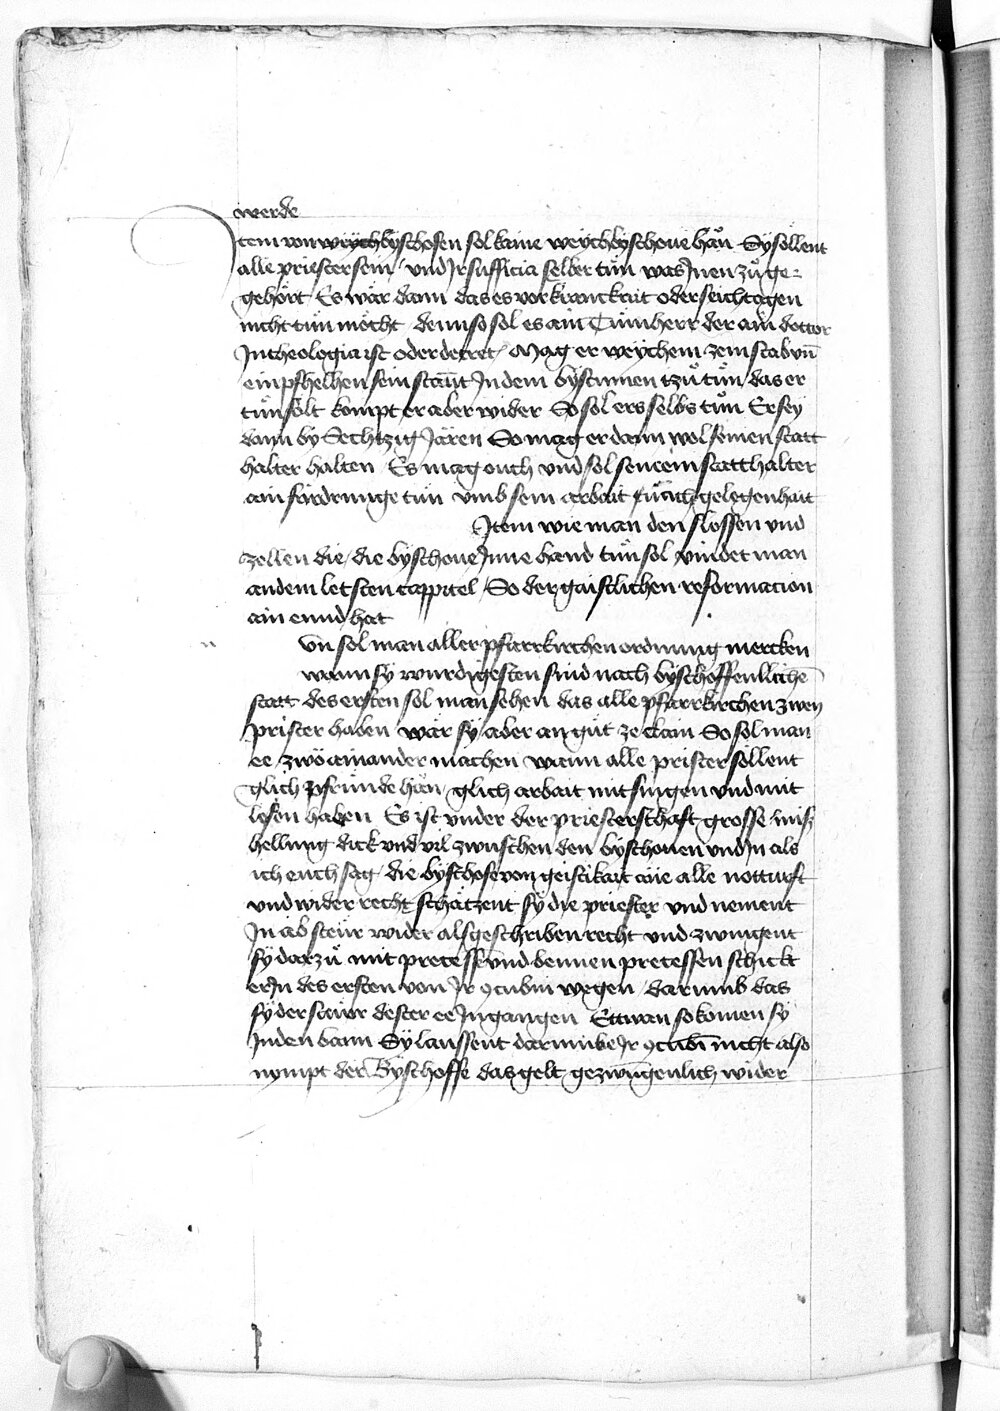 werde
Item von weychbyschofen sol kaine weychbyschoue hǎn Sy söllent
alle priester sein / vnd Jr sufficia selber tůn was Jnen zů ge=
gehört Es wär dann das es vor kranckait oder seichtagen
nicht tůn möcht / denn so sol es ain Tůmherr der ain doctor
Jn theologia ist oder decret / Mag er weychem zem stab vn̄
ein pfhelhen sein stan̄t Jn dem bystumen tzů tůn das er
tůn solt kompt er aber wider So sol ers selbs tůn Er sey
dann by Sechtzig Jǎren So mag er dann wol seinen statt
halter halten Es mag ouch vnd sol seneem statthalter
ain fürdrunge tůn vmb sein arbait nǎch gelegenhait
Item wie man den slossen vnd
zellen die / die byschoue Jnne hand tůn sol vindet man
an dem letsten cappitel / So der gaistlichen reformacion
ain ennd hat
vn̄ sol man aller pfarrkirchen ordnung mercken
wann sy wurdigesten sind nach byschoffenllichē
statt des ersten sol man sehen das alle pfarrkirchen zwen
prister haben wär sy aber an gůt ze clain So sol man
ee zwö ainander machen wann alle prister söllent
glich pfründe hǎn / glich arbait mit singen vnd mit
lesen haben Es ist vnder der priesterschaft grosse misz
hellung dick vnd vil zwuschen den byschouen vnd Jn als
ich euch sag / die byschofe von geistikait wie alle notturft
vnd wider recht schätzent sy die priester vnd nement
Jn ab steür wider als geschriben recht vnd zwingent
sy darzů mit process vnd bennen processen schickt
er Jn des ersten von Jr ꝯcubin wegen / darumb das
sy der steüer dester ee Jngangen Ettwan so komen sy
Jn den bann Sy laussent darumbe Jr ꝯcubī nicht also
nympt der Byschoffe das gelt gezwūgenlich wider